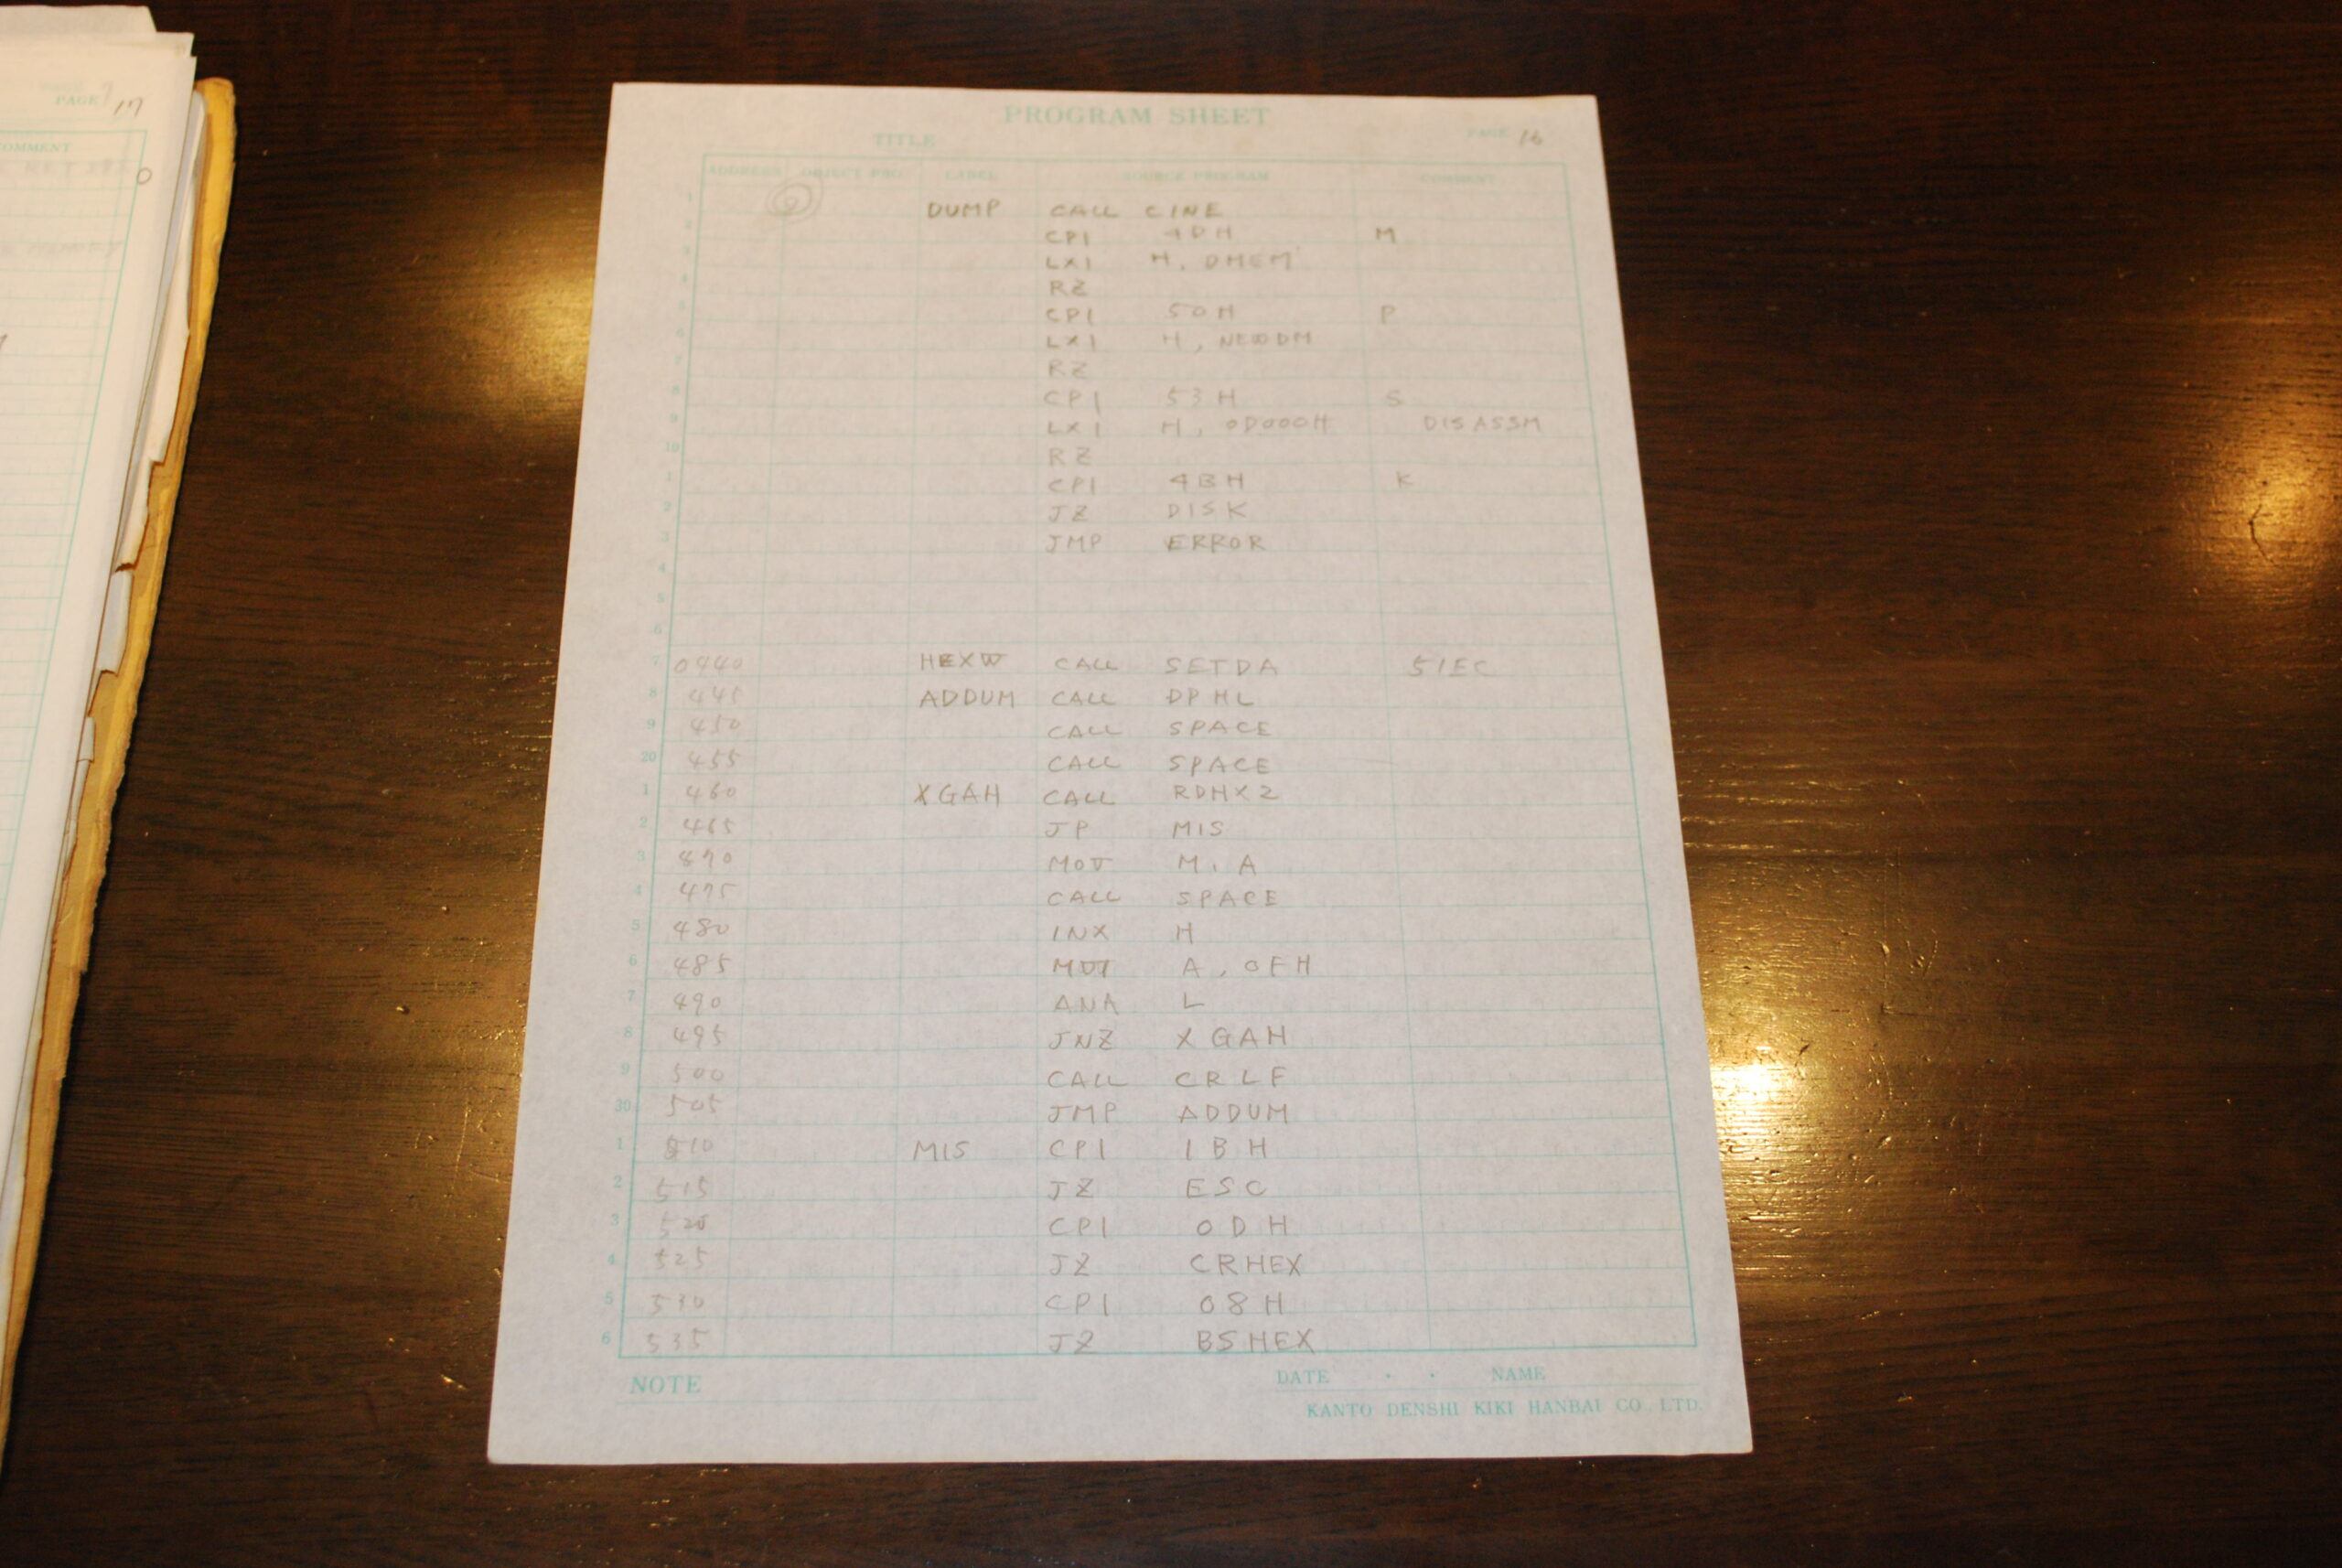 PROGRAM SHEET
TITLE PAGE 16
ADDRESS OBJECT PRO. LABEL SOURCE PROGRAM COMMENT
1 DUMP CALL CINE
2 CPI 4DH M
3 LXI H, DMEM
4 RZ
5 CPI 50H P
6 LXI H, NEWDM
7 RZ
8 CPI 53H S
9 LXI H, 0D000H DISASSM
10 RZ
1 CPI 4BH K
2 JZ DISK
3 JMP ERROR
4
5
6
7 0440 HEXW CALL SETDA 51EC
8 445 ADDUM CALL DPHL
9 450 CALL SPACE
20 455 CALL SPACE
1 460 XGAH CALL RDHX2
2 465 JP MIS
3 870 MOV M, A
4 475 CALL SPACE
5 480 INX H
6 485 MVI A, 0FH
7 490 ANA L
8 495 JNZ XGAH
9 500 CALL CRLF
30 505 JMP ADDUM
1 510 MIS CPI 1BH
2 515 JZ ESC
3 520 CPI 0DH
4 525 JZ CRHEX
5 530 CPI 08H
6 535 JZ BSHEX
NOTE DATE . . NAME
KANTO DENSHI KIKI HANBAI CO. LTD.
PAGE 17
COMMENT